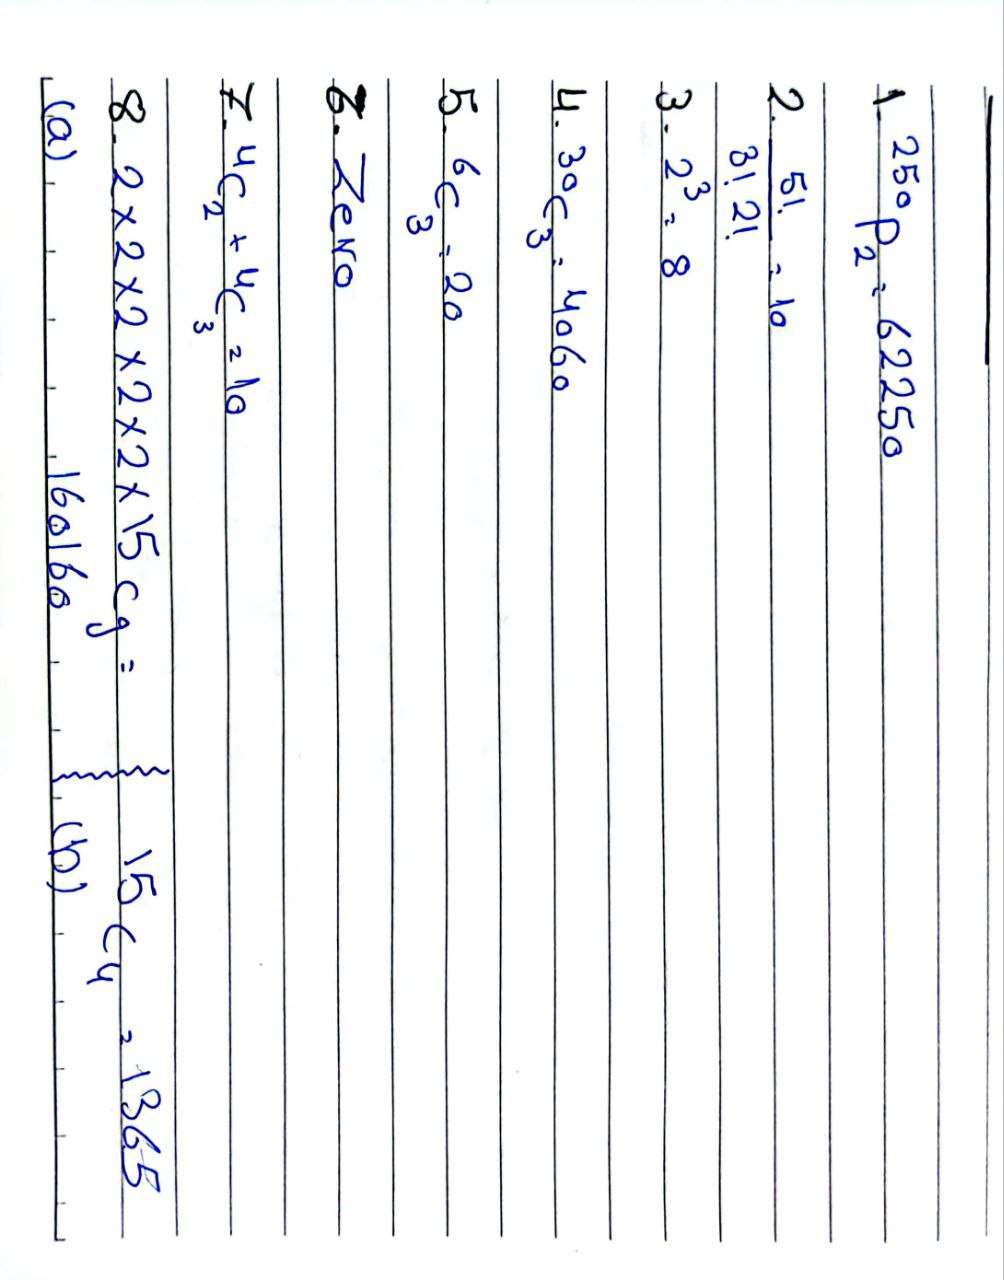 1. 250P2 = 62250
2. 5!
3! 2! = 10
3. 2³ = 8
4. 30C3 = 4060
5. 6C3 = 20
6. Zero
7. 4C2 + 4C3 = 10
8. 2×2×2×2×2×15C9 = 15C4 = 1365
(a) 160160 (b)